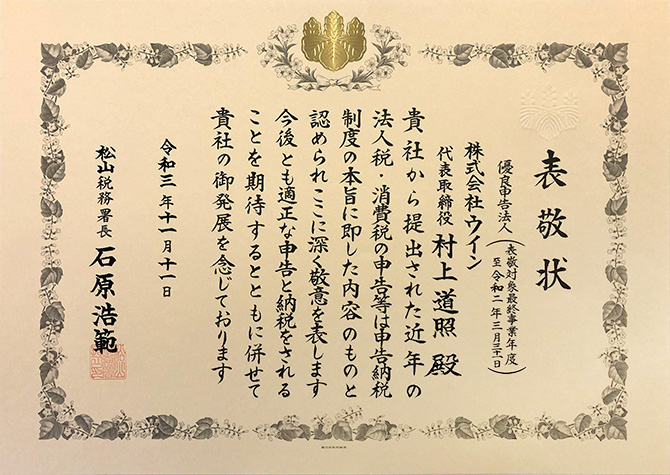 表敬状
優良申告法人（表敬対象最終事業年度
至令和二年三月三十一日）
株式会社ウイン
代表取締役 村上道照 殿
貴社から提出された近年の
法人税・消費税の申告等は申告納税
制度の本旨に即した内容のものと
認められここに深く敬意を表します
今後とも適正な申告と納税をされる
ことを期待するとともに併せて
貴社の御発展を念じております
令和三年十一月十一日
松山税務署長 石原浩範